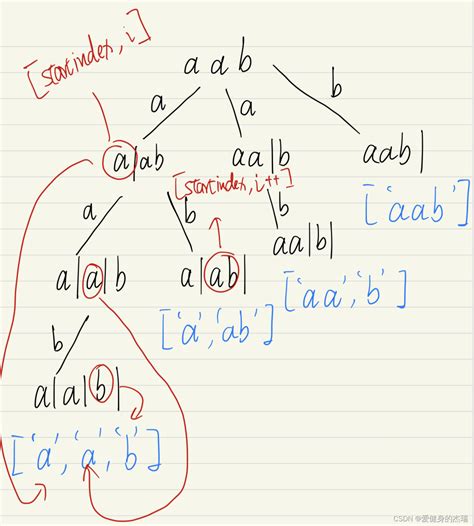 [startindex, i]
a a b
a
a
b
a|ab
aa|b
aab|
[startindex, i++]
['aab']
a
b
b
a|a|b
a|ab|
aa|b|
['a','ab']
['aa','b']
b
a|a|b|
['a','a','b']
CSDN @爱健身的杰瑞